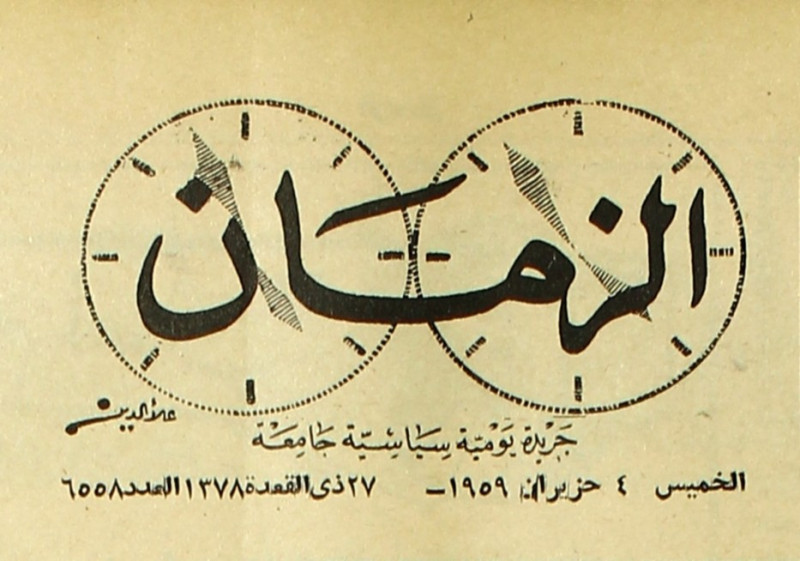 الزمان
علاءالدين
جَريدة يَوميّة سِيَاسِيّة جَامِعَة
الخميس ٤ حزيران ١٩٥٩ – ٢٧ ذى القعدة ١٣٧٨ العدد ٦٥٥٨